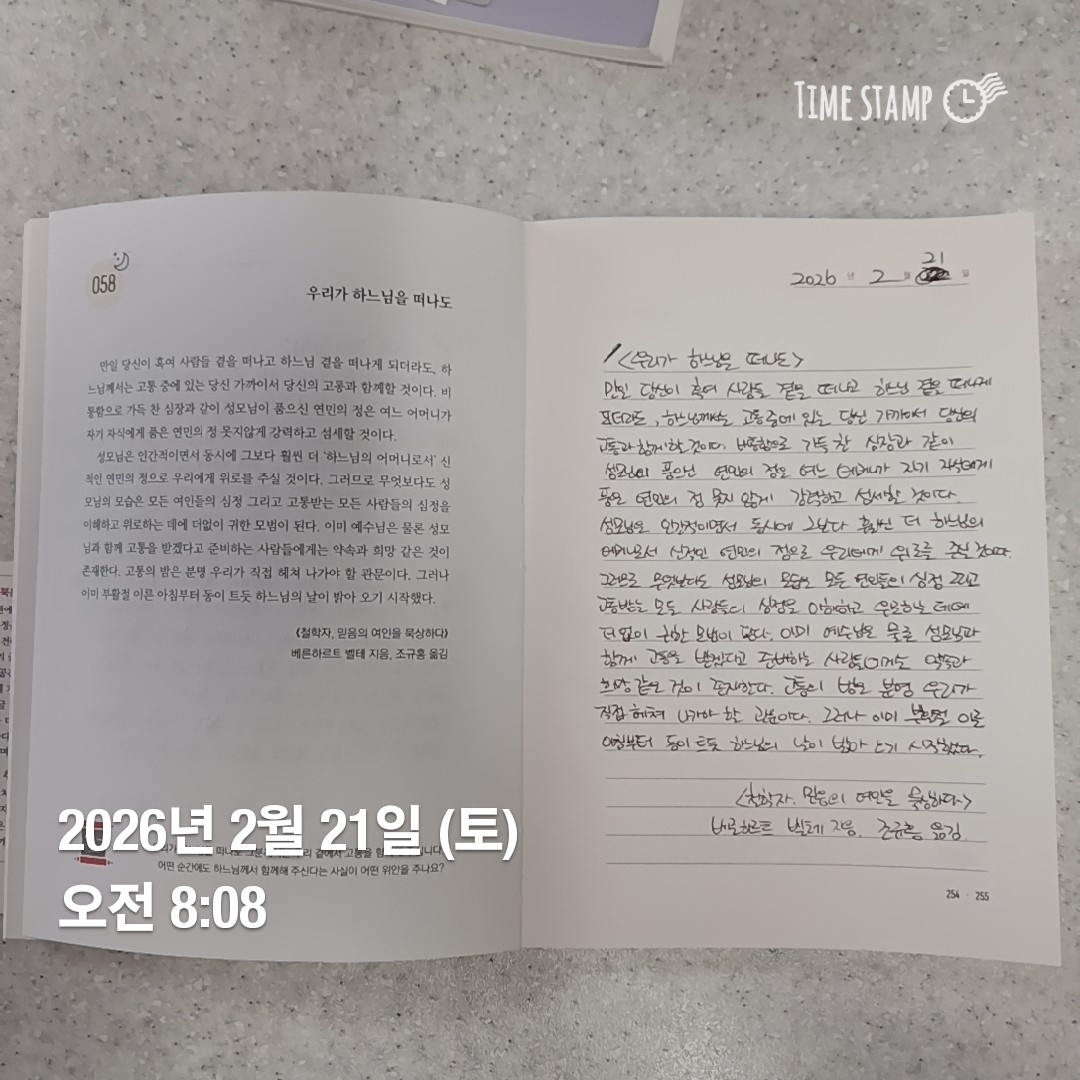 TIME STAMP
058
우리가 하느님을 떠나도
만일 당신이 혹여 사람들 곁을 떠나고 하느님 곁을 떠나게 되더라도, 하
느님께서는 고통 중에 있는 당신 가까이서 당신의 고통과 함께할 것이다. 비
통함으로 가득 찬 심장과 같이 성모님이 품으신 연민의 정은 여느 어머니가
자기 자식에게 품은 연민의 정 못지않게 강력하고 섬세할 것이다.
성모님은 인간적이면서 동시에 그보다 훨씬 더 ‘하느님의 어머니로서’ 신
적인 연민의 정으로 우리에게 위로를 주실 것이다. 그러므로 무엇보다도 성
모님의 모습은 모든 여인들의 심정 그리고 고통받는 모든 사람들의 심정을
이해하고 위로하는 데에 더없이 귀한 모범이 된다. 이미 예수님은 물론 성모
님과 함께 고통을 받겠다고 준비하는 사람들에게는 약속과 희망 같은 것이
존재한다. 고통의 밤은 분명 우리가 직접 헤쳐 나가야 할 관문이다. 그러나
이미 부활절 이른 아침부터 동이 트듯 하느님의 날이 밝아 오기 시작했다.
《철학자, 믿음의 여인을 묵상하다》
베른하르트 벨테 지음, 조규홍 옮김
떠나도
곁에서 고통을
어떤 순간에도 하느님께서 함께해 주신다는 사실이 어떤 위안을 주나요?
2026년 2월 21일 (토)
오전 8:08
21
2026 년 2 월 일
<우리가 하느님을 떠나도>
만일 당신이 혹여 사람들 곁을 떠나고 하느님 곁을 떠나게
되더라도, 하느님께서는 고통 중에 있는 당신 가까이서 당신의
고통과 함께 할 것이다. 비통함으로 가득 찬 심장과 같이
성모님이 품으신 연민의 정은 여느 어머니가 자기 자식에게
품은 연민의 정 못지 않게 강력하고 섬세할 것이다.
성모님은 인간적이면서 동시에 그보다 훨씬 더 하느님의
어머니로서 신적인 연민의 정으로 우리에게 위로를 주실 것이다.
그러므로 무엇보다도 성모님의 모습은 모든 여인들의 심정 그리고
고통받는 모든 사람들의 심정을 이해하고 위로하는 데에
더없이 귀한 모범이 된다. 이미 예수님은 물론 성모님과
함께 고통을 받겠다고 준비하는 사람들에게는 약속과
희망 같은 것이 존재한다. 고통의 밤은 분명 우리가
직접 헤쳐 나가야 할 관문이다. 그러나 이미 부활절 이른
아침부터 동이 트듯 하느님의 날이 밝아 오기 시작했다.
<철학자, 믿음의 여인을 묵상하다>
베른하르트 벨테 지음, 조규홍 옮김.
254 · 255